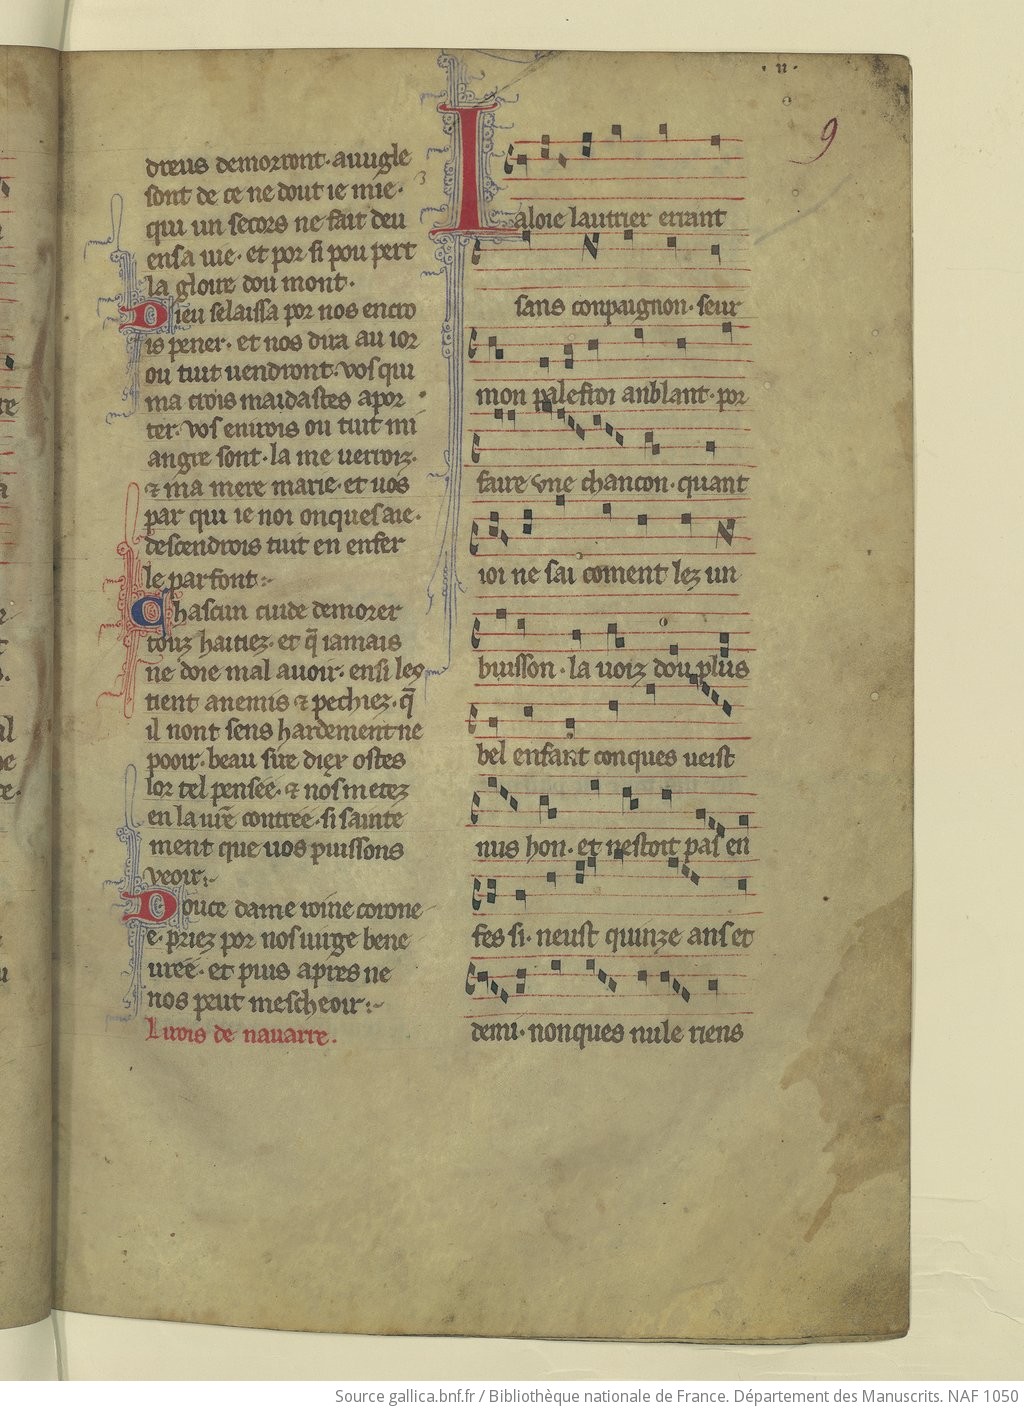 .ii.
9
dreus demorront. auugle
sont de ce ne dout ie mie.
qui un secors ne fait deu
en sa uie. et por si pou pert
la gloire dou mont.
Dieu se laissa por nos en cro
is pener. et nos dira au ior
ou tuit uendront. vos qui
ma crois maidastes a por
ter. vos en irois ou tuit mi
angre sont. la me uerroiz.
⁊ ma mere marie. et uos
par qui ie noi onques aie.
descendrois tuit en enfer
le parfont:-
Chascun cuide demorer
touz haitiez. et q̃ iamais
ne doie mal auoir. ensi les
tient anemis ⁊ pechiez. q̃
il nont sens hardement ne
pooir. beau sire diex ostes
lor tel pensee. ⁊ nos metez
en la ur̃e contree. si sainte
ment que uos puissons
veoir:-
Douce dame roine corone
e. priez por nos uirge bene
uree. et puis apres ne
nos peut mescheoir:-
Li rois de nauarre.
Ialoie lautrier errant
sans conpaignon. seur
mon palefroi anblant. por
faire vne chancon. quant
ioi ne sai coment lez un
buisson. la uoiz dou plus
bel enfant conques ueist
nus hon. et nestoit pas en
fes si. neust quinze ans et
demi. nonques nule riens
Source gallica.bnf.fr / Bibliothèque nationale de France. Département des Manuscrits. NAF 1050